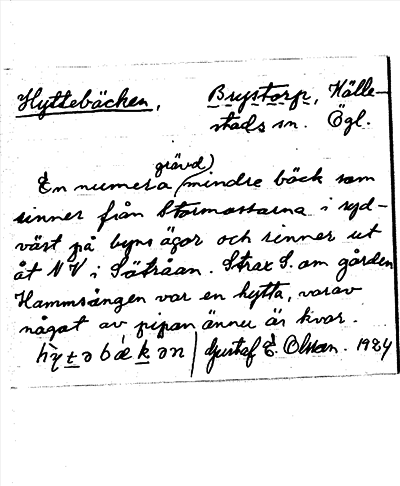 Hyttebäcken, Brystorp, Hälle-
stads sn. Ögl.
grävd)
En numera (mindre bäck som
rinner från Stormossarna i syd-
väst på byns ägor och rinner ut
åt NV i Sätraån. Strax S. om gården
Hammsängen var en hytta, varav
något av pipan ännu är kvar.
hỳt̲əbák̲ən | Gustaf E. Olsson. 1984